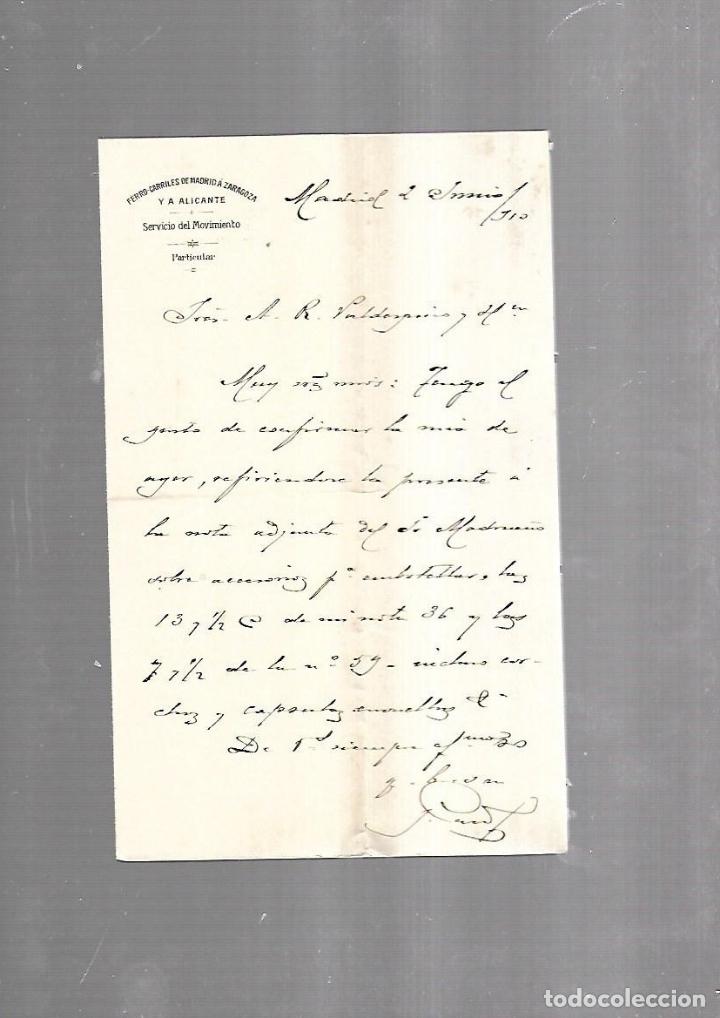 FERRO-CARRILES DE MADRID Á ZARAGOZA
Y A ALICANTE
Servicio del Movimiento
Particular
Madrid 2 Junio/910
Sres. A. R. Valdespino y Hno
Muy Sres mios: Tengo el
gusto de confirmar la mia de
ayer, refiriendose la presente á
la nota adjunta del Sr Madrueño
sobre accesorios pa embotellar las
13 y 1/2 C de mi nota 36 y las
7 y 1/2 de la nº 59 - incluso cor-
chos y capsulas
De Vs siempre afmo
todocoleccion.net